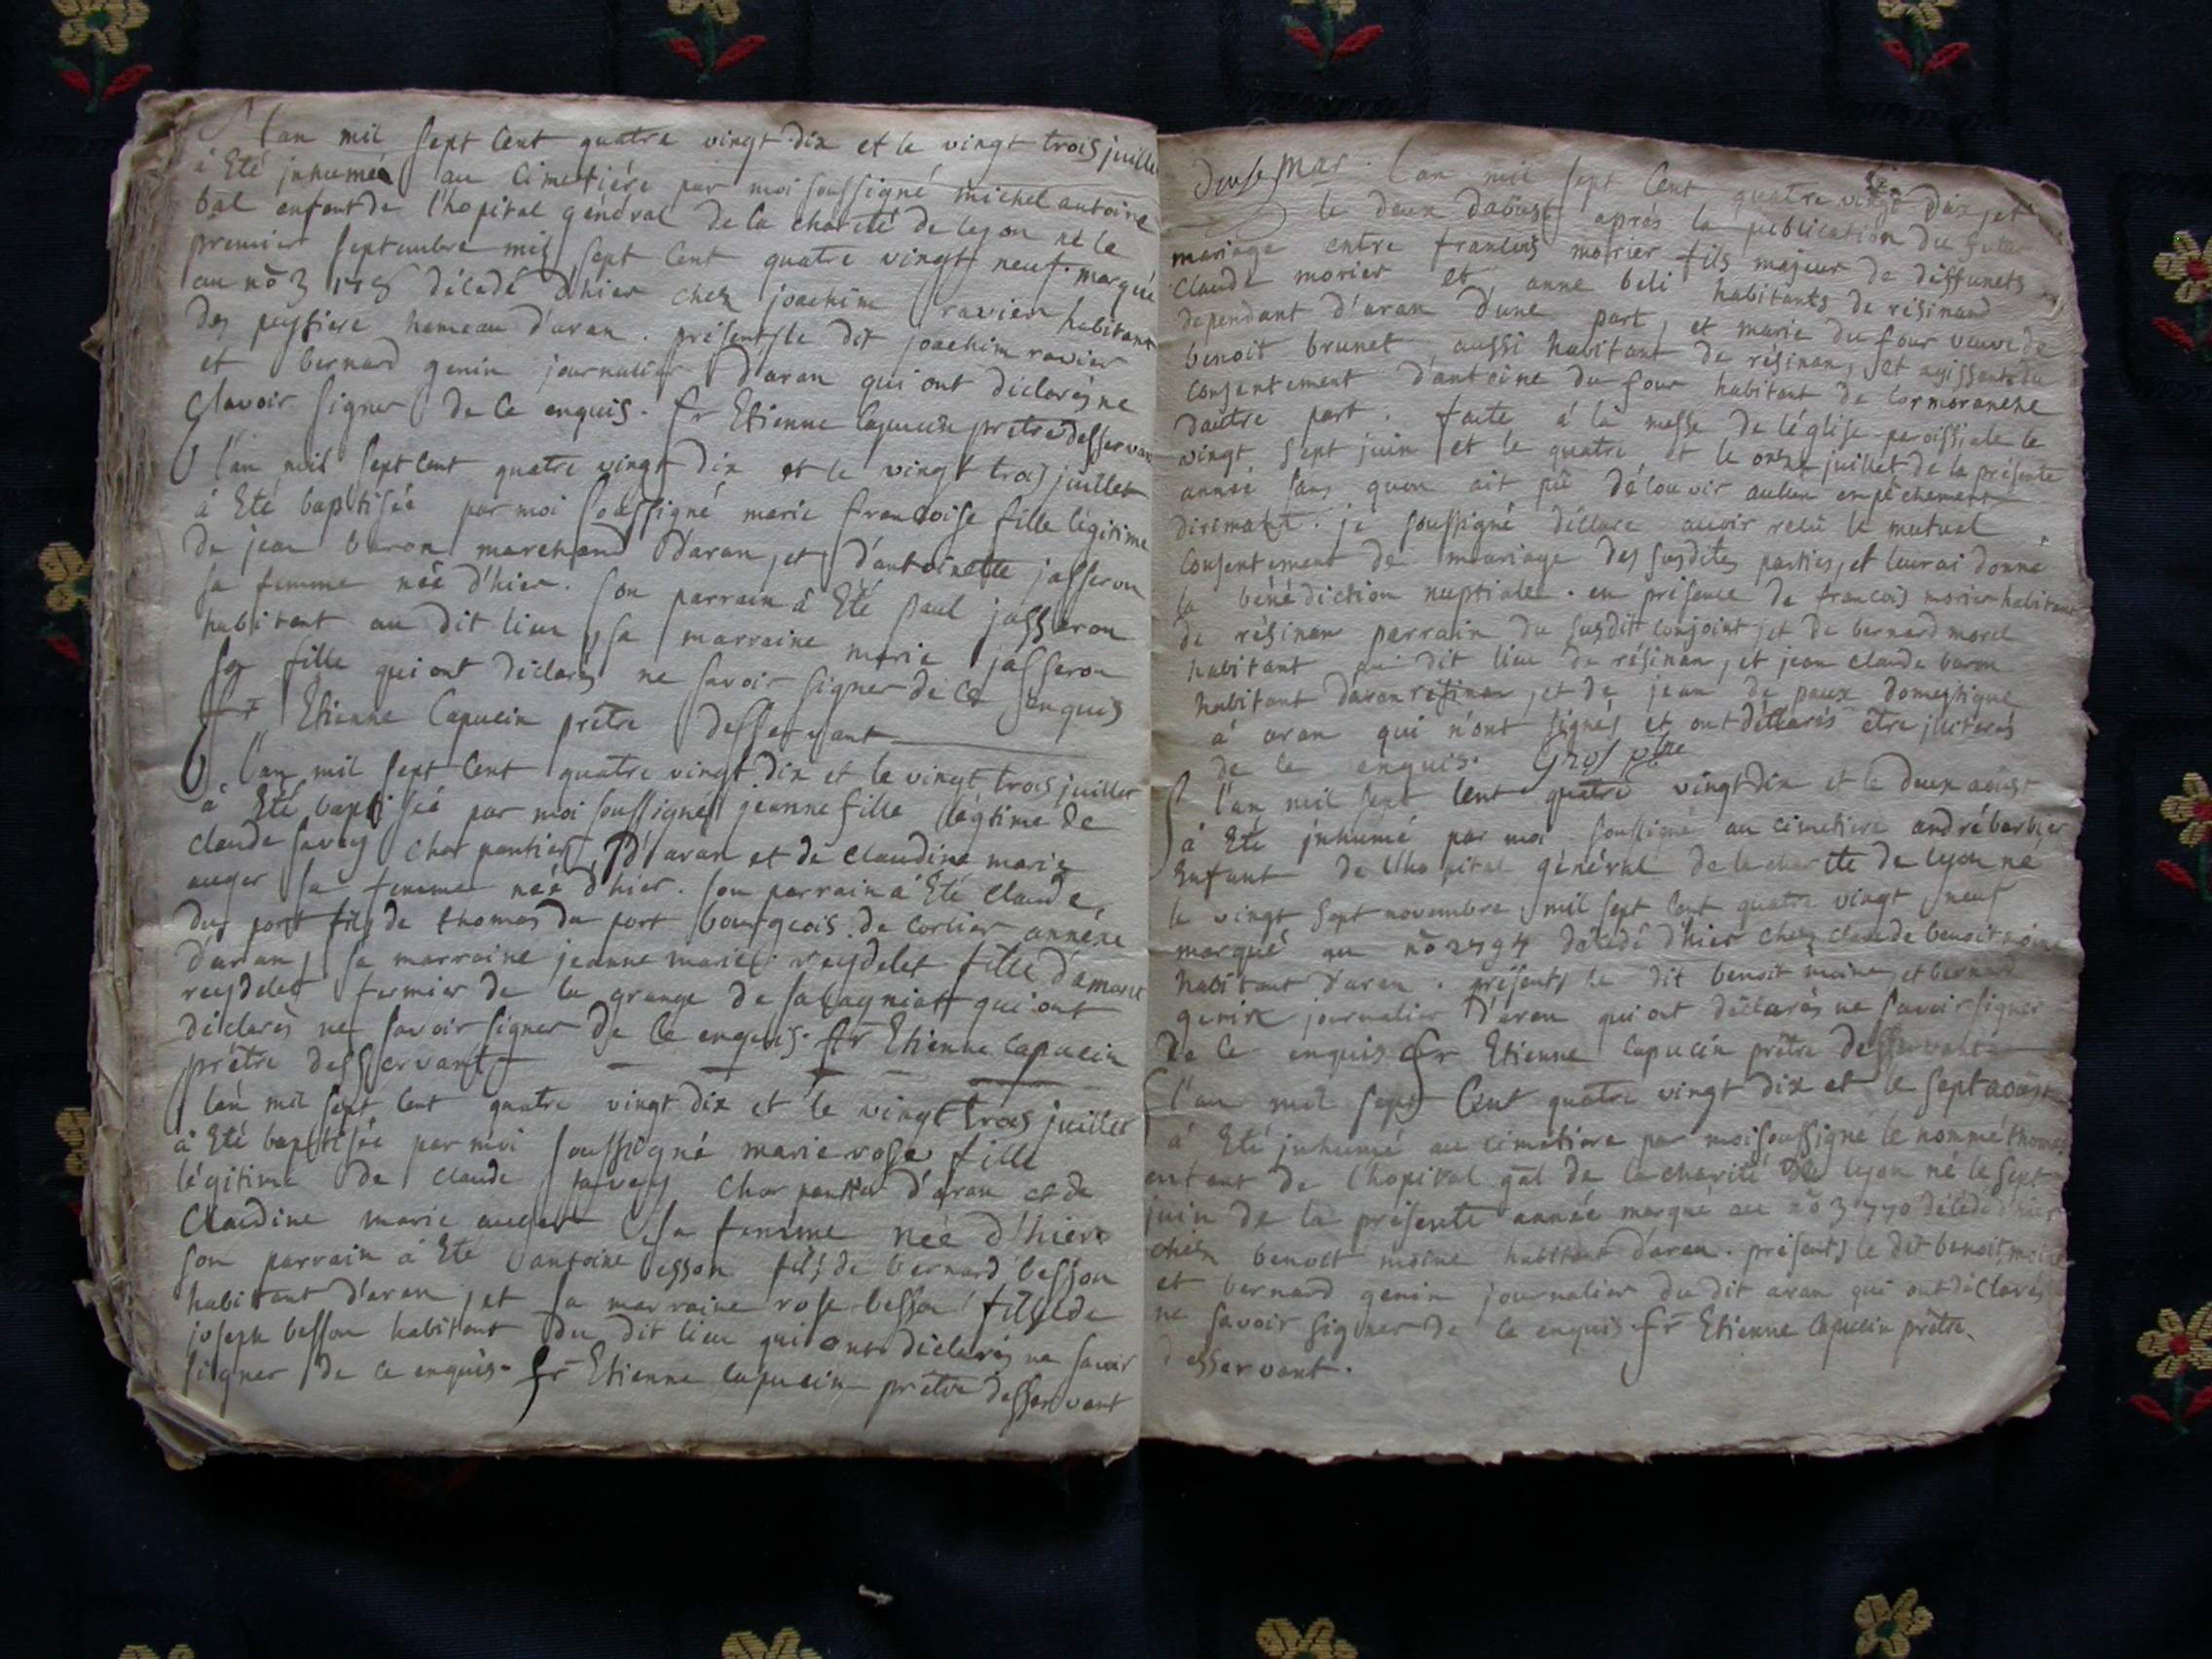 l'an mil sept cent quatre vingt dix et le vingt trois juillet
à Eté inhumé au Cimetiére par moi soussigné michel antoine
bal enfant de l'hopital général de la charité de lyon né le
premier septembre mil sept cent quatre vingt neuf. marqué
au nõ 3 décédé d'hier chez joachim ravier habitant
des peysiere hameau d'aran. présents le dit joachim ravier
et bernard genin journalier d'aran qui ont déclarés ne
savoir signer de ce enquis. fr Etienne Capucin prêtre desservant
l'an mil sept cent quatre vingt dix et le vingt trois juillet
à Eté baptisée par moi soussigné marie francoise fille légitime
de jean baron marchand d'aran, et d'antoinette jasseron
sa femme née d'hier. son parrain à Eté paul jasseron
habitant au dit lieu, sa marraine marie jasseron
sa fille qui ont déclarés ne savoir signer de ce enquis
fr Etienne Capucin prêtre desservant
l'an mil sept cent quatre vingt dix et le vingt trois juillet
à Eté baptisée par moi soussigné jeanne fille légtime de
claude savey charpantier d'aran et de claudine marie
auger sa femme née d'hier. son parrain à Eté claude
du port fils de thomas du port bourgeois de corlier annexe
d'aran, sa marraine jeanne marie reydelet fille d'
reydelet fermier de la grange de qui ont
déclarés ne savoir signer de ce enquis. fr Etienne Capucin
prêtre desservant
l'an mil sept cent quatre vingt dix et le vingt trois juillet
à Eté baptisée par moi soussigné marie rose fille
légitime de claude savey charpantier d'aran et de
Claudine marie auger sa femme née d'hier
son parrain à Eté antoine besson fils de bernard besson
habitant d'aran, et sa marraine rose besson fille de
joseph besson habitant du dit lieu qui ont déclarés ne savoir
signer de ce enquis. fr Etienne capucin prêtre desservant
mar. l'an mil sept cent quatre vingt dix, et
le deux d'aoust aprés la publication du futur
mariage entre francois morier fils majeur de deffunets
Claude morier et anne beli habitants de résinand
dependant d'aran d'une part, et marie du four veuve de
benoit brunet, aussi habitant de résinan, et agissante du
consentement d'antoine du four habitant de Cormoranche
d'autre part. faite à la messe de l'église paroissiale le
vingt sept juin et le quatre et le onze juillet de la présente
année sans quon ait pû découvir aucun empêchement
dirimant. je soussigné déclare avoir recû le mutuel
Consentement de mariage des susdites parties, et leur ai donné
la bénédiction nuptiale. en présence de francois morier habitant
de résinan parrain du susdit conjoint, et de bernard morel
habitant au dit lieu de résinan, et jean claude baron
habitant d'aran résinan, et de jean de paux domestique
à aran qui n'ont signés et ont déclarés être
de ce enquis. Gros ptre
l'an mil sept cent quatre vingt dix et le deux aoust
à Eté inhumé par moi soussigné au cimetiere andré barbier
enfant de l'hopital général de la charité de lyon né
le vingt sept novembre mil sept cent quatre vingt neuf
marqué au nõ 2794 décédé d'hier chez claude benoit moine
habitant d'aran. présents le dit benoit moine, et bernard
genin journalier d'aran qui ont déclarés ne savoir signer
de ce enquis fr Etienne capucin prêtre desservant
l'an mil sept cent quatre vingt dix et le sept aoust
à Eté inhumé au cimetiere par moi soussigné le nommé thomas
enfant de l'hopital gãl de la charité de lyon né le sept
juin de la présente année marqué au nõ 3770 décédé d'hier
chéz benoit moine habitant d'aran. présents le dit benoit moine
et bernard genin journalier du dit aran qui ont déclarés
ne savoir signer de ce enquis. fr Etienne Capucin prêtre
desservant.